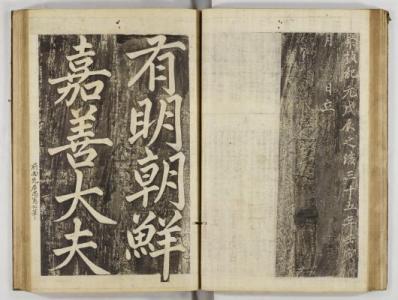 禎紀元戊辰之後三十五年
月 日立
有明朝鮮
嘉善大夫